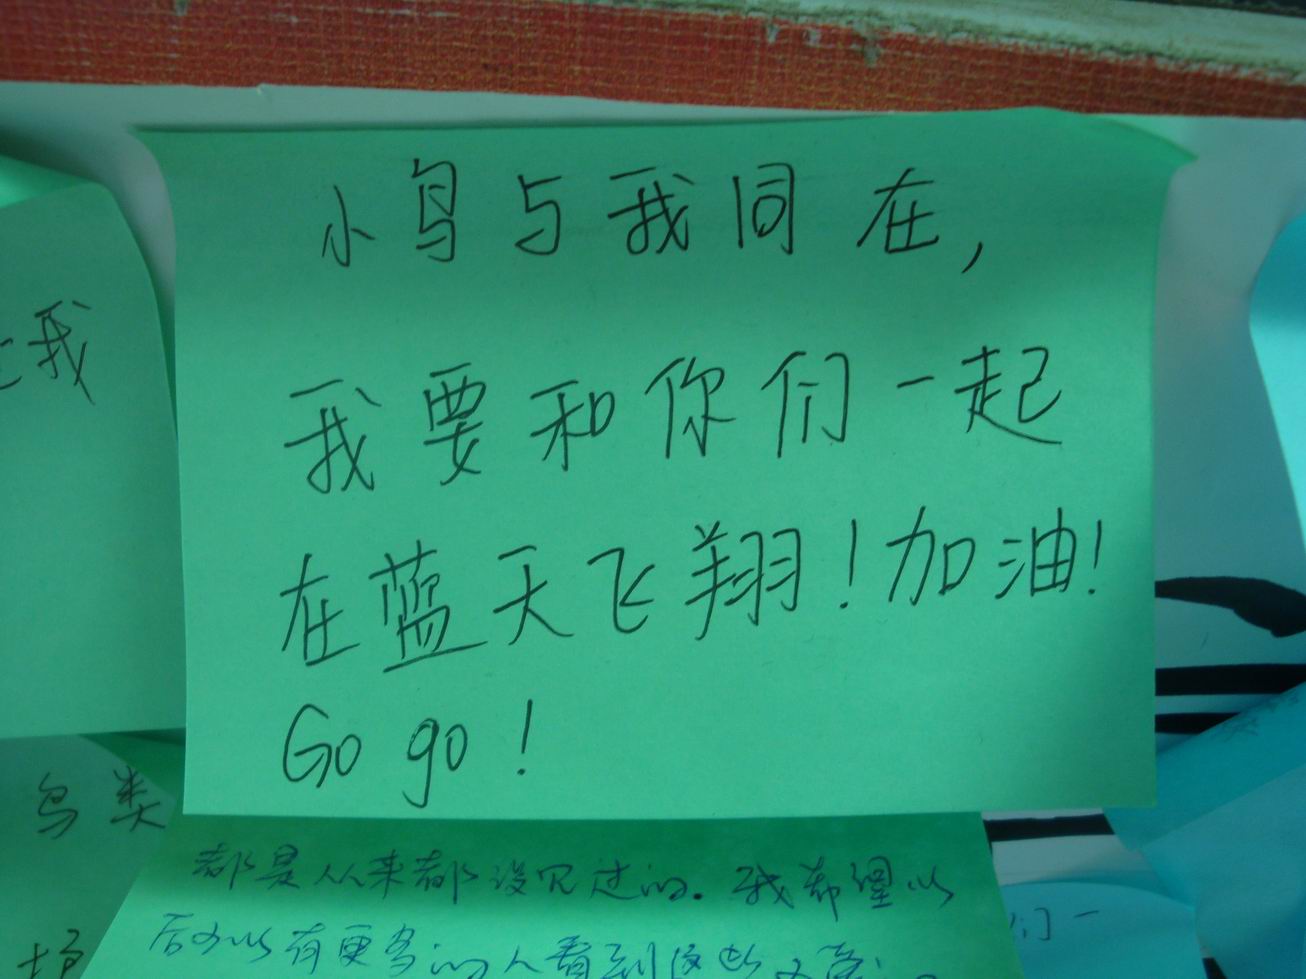 小鸟与我同在,
我要和你们一起
在蓝天飞翔!加油!
Go go!
我
鸟类
都是从来都没见过的.我希望以
后可以有更多的人看到这些
们一